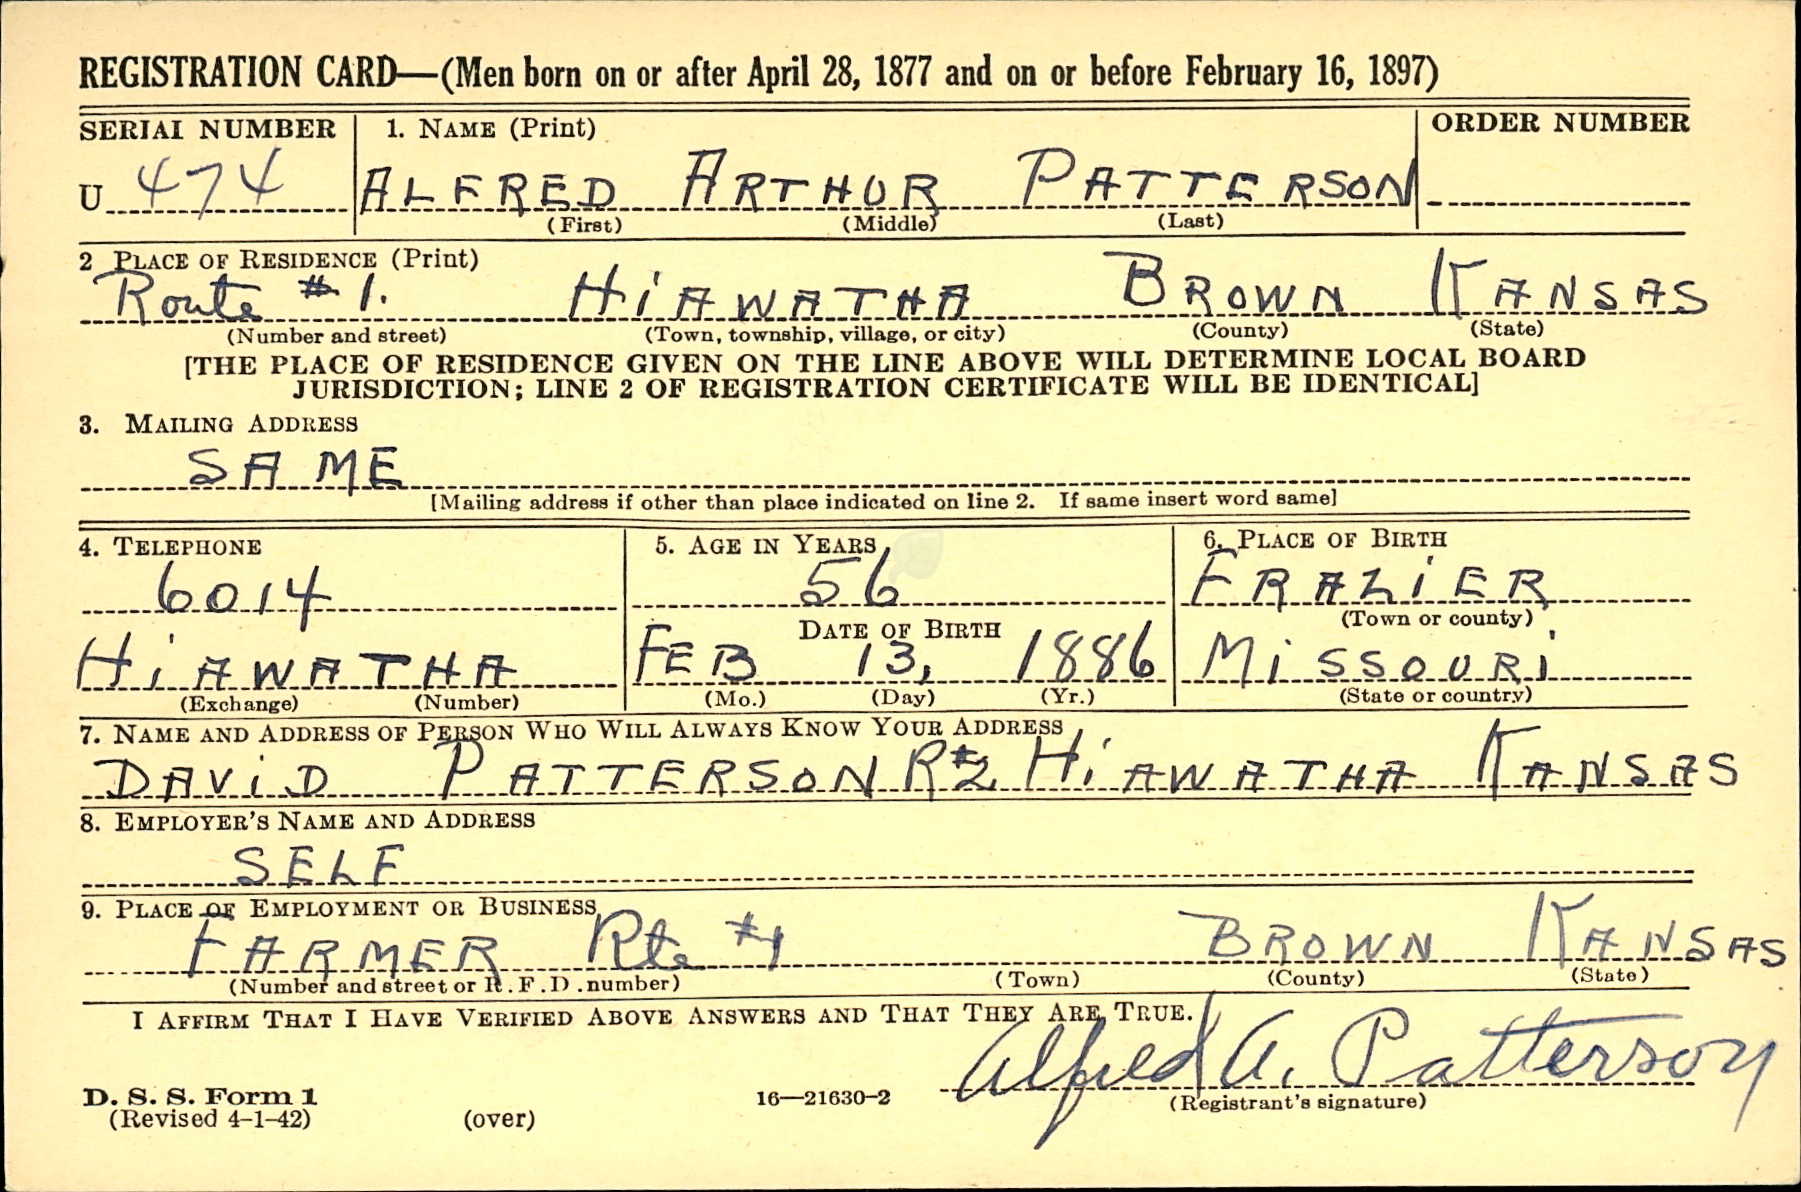 REGISTRATION CARD—(Men born on or after April 28, 1877 and on or before February 16, 1897)
SERIAL NUMBER 1. NAME (Print) ORDER NUMBER
U 474 ALFRED ARTHUR PATTERSON
(First) (Middle) (Last)
2 PLACE OF RESIDENCE (Print)
Route # 1. HiAWATHA BROWN KANSAS
(Number and street) (Town, township, village, or city) (County) (State)
[THE PLACE OF RESIDENCE GIVEN ON THE LINE ABOVE WILL DETERMINE LOCAL BOARD
JURISDICTION; LINE 2 OF REGISTRATION CERTIFICATE WILL BE IDENTICAL]
3. MAILING ADDRESS
SAME
[Mailing address if other than place indicated on line 2. If same insert word same]
4. TELEPHONE 5. AGE IN YEARS 6. PLACE OF BIRTH
6014 56 FRAZiER
DATE OF BIRTH (Town or county)
HiAWATHA FEB 13, 1886 MiSSOURi
(Exchange) (Number) (Mo.) (Day) (Yr.) (State or country)
7. NAME AND ADDRESS OF PERSON WHO WILL ALWAYS KNOW YOUR ADDRESS
DAViD PATTERSON R#2 HiAWATHA KANSAS
8. EMPLOYER'S NAME AND ADDRESS
SELF
9. PLACE OF EMPLOYMENT OR BUSINESS
FARMER Rte #1 BROWN KANSAS
(Number and street or R.F.D. number) (Town) (County) (State)
I AFFIRM THAT I HAVE VERIFIED ABOVE ANSWERS AND THAT THEY ARE TRUE.
Alfred A. Patterson
D. S. S. Form 1 16—21630-2 (Registrant's signature)
(Revised 4-1-42) (over)